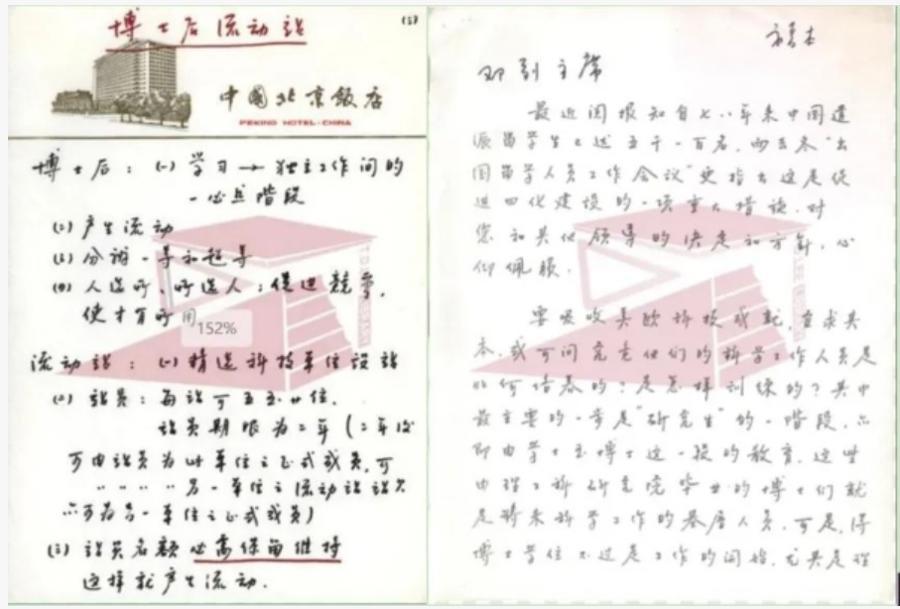 博士后流动站
(5)
中國北京飯店
PEKING HOTEL·CHINA
博士后：(一) 学习 → 独立工作间的
一必然階段
(二) 产生流动
(四) 人选所、所选人；促进競爭，
使才有所用
152%
流动站：(一) 精选科技单位设站
(二) 站员：每站可五至廿位。
站员期限为二年 (二年后
可由站员为此单位之正式成员，可
〃 〃 〃 〃 另一单位之流动站站员
亦可为另一单位之正式成员)
(三) 站员名额必需保留维持
这样就产生流动．
邓副主席
最近阅报知自七八年来中国遣
派留学生已达五千一百名，而去冬“出
国留学人员工作会议”更指出这是促
进四化建设的一项重大措施．对
您和其他领导的决定和方針，心
仰佩服．
要吸收美欧科技成就，首求其
本，或可问究竟他们的科学工作人员是
如何培养的？是怎样训练的？其中
最主要的一步是“研究生”的一階段，亦
即由学士至博士这一段的教育．这些
由理工科研究院毕业的博士们就
是将来科学工作的基层人员．可是，得
博士学位只不过是工作的開始，尤其是在